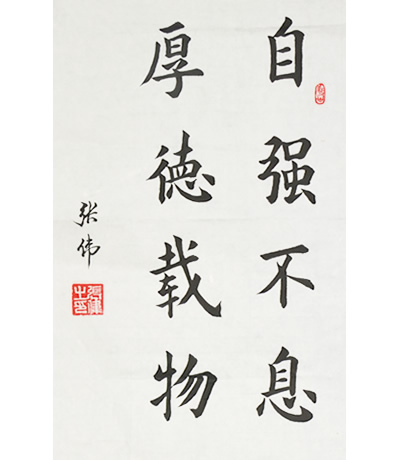 自强不息
厚德载物
张伟